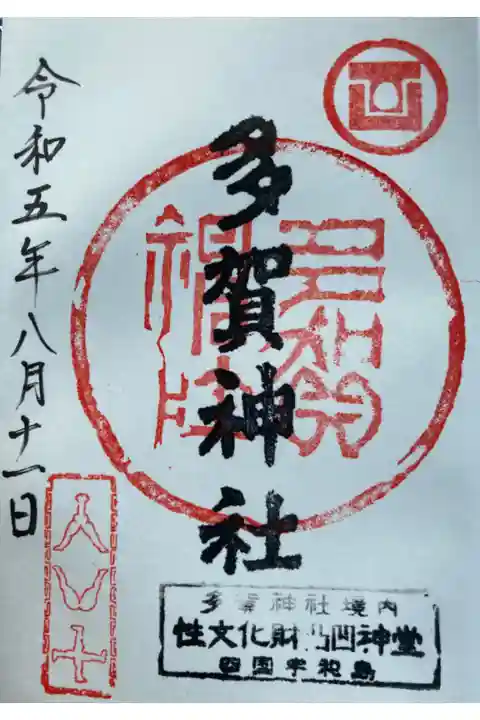 多賀神社
令和五年八月十一日
多賀神社境内
性文化財凸凹神堂
四国宇和島